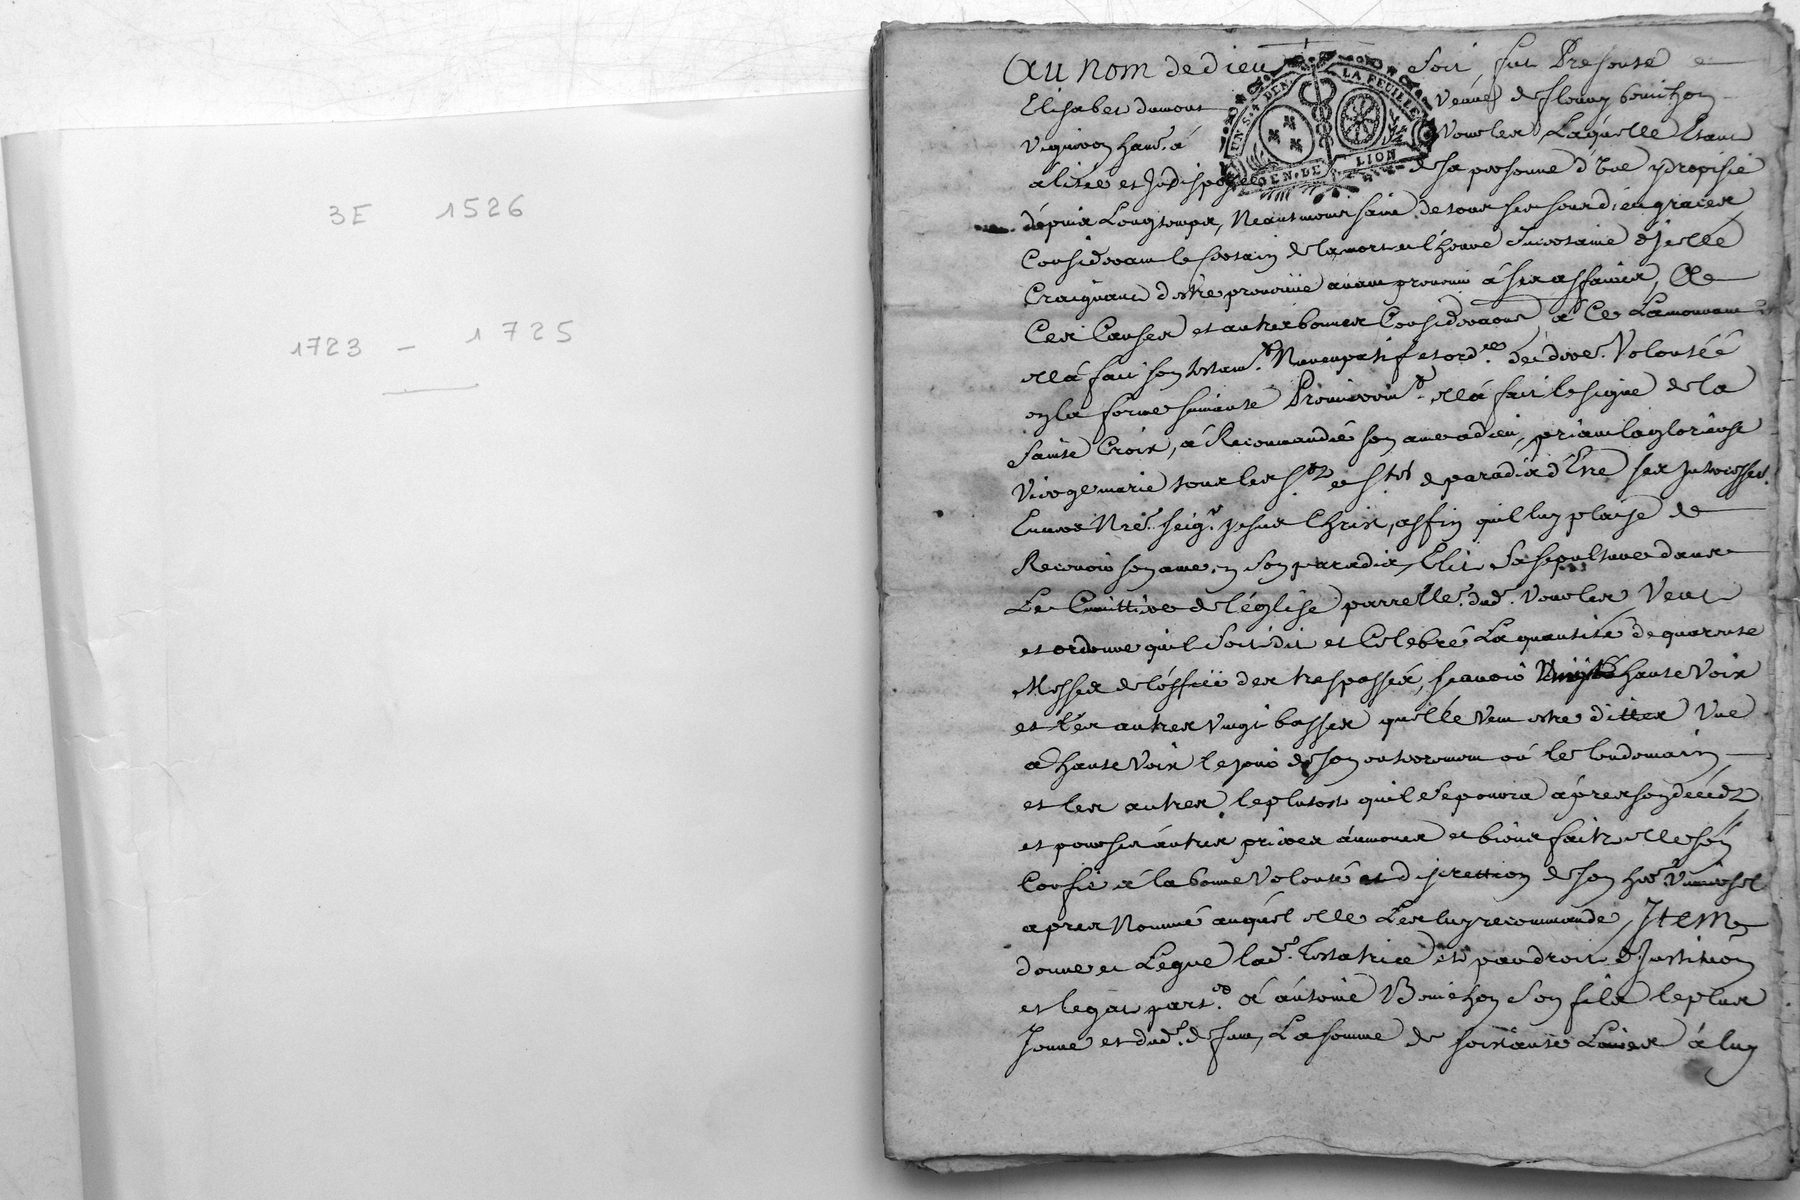 3E 1526
1723 - 1725
Au nom de dieu soit, fut Presente
Elisabet dumont veuve de fleury bouichon
vigneron hant. á Vourles Laquelle Etant
alitée et Indisposée de sa personne d'vne ydropisie
dépuis Longtemps, Neantmoins saine de tous ses sens dieu graces,
Considerant le certain de la mort et l'heure Incertaine d'jcelle
Craignant d'estre prevenüe avant pourvoir á ses affaires, De
Ces Causes et autres bonnes Consideraõns á Ce La mouvant
ellá fait son testamt. Nuncupatif et ordre. de derre. Volontéé
en la forme suivante Premieremt. ellá fait le signe de la
sainte Croix, á Recommandé son ame a dieu, priant la glorieuse
Vierge marie tous les Sts et Stes de paradis d'Etre ses Intercess.
Envers Nre. Seigr. jesus Christ, affin qu'il luy plaise de
Recevoir son ame en son paradis, Elit sa sepulture dans
Le Cimittiere de l'église parrelle. dud. Vourles Veut
et ordonne qu'il soit dit et Celebré La quantité de quarente
Messes de l'office des trespassés, scavoir Vingt á haute Voix
et les autres vingt basses quelle veut estre dittes Vne
a haute Voix le jour de son enterrement oú le lendemain
et les autres le plutost qu'il se pourra áprés son décéds
et pour ses autres prieres áumones et biens faits elle s'en
Confie á la bonne Volonté et discrettion de son her. Vniversel
apres Nommé auquel elle Les luy recommande, Item
donne et Legue lade. testatrice et par droit d'Institution
et legat part. á ántoine Bouichon son fils le plus
Jeune et dud. defunt, La somme de soixante Livres á luy
GEN. DE LION
LA FEUILLE